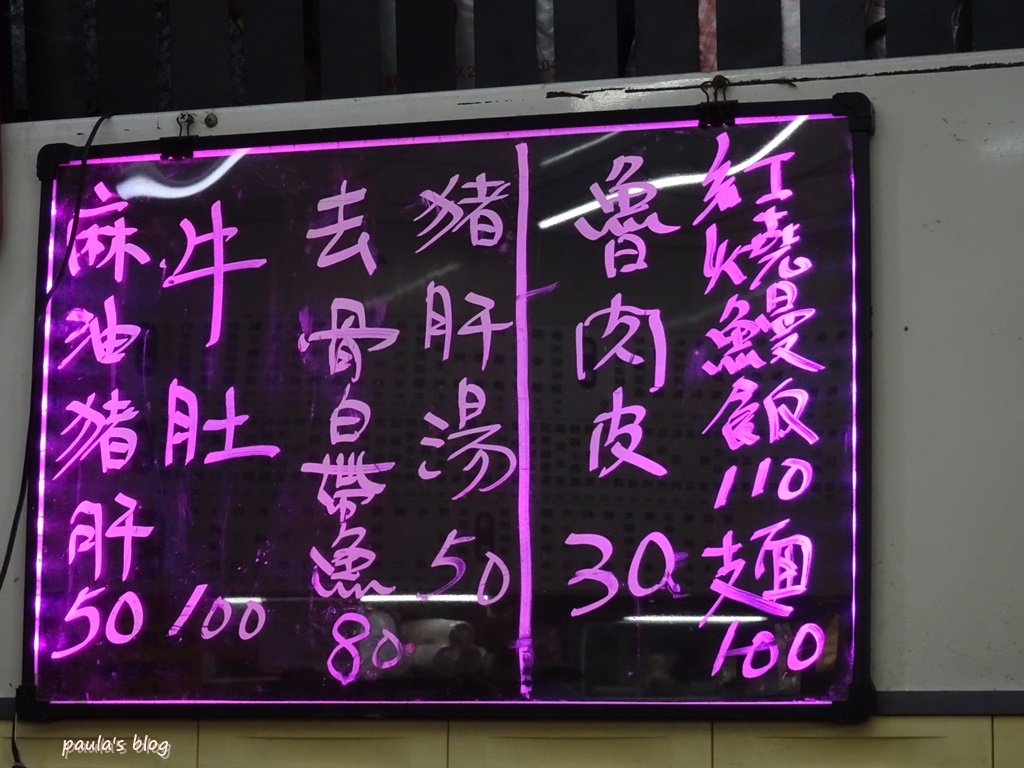 紅燒鰻飯110麵100
魯肉皮30
豬肝湯50
去骨白帶魚80
牛肚100
麻油豬肝50
paula's blog